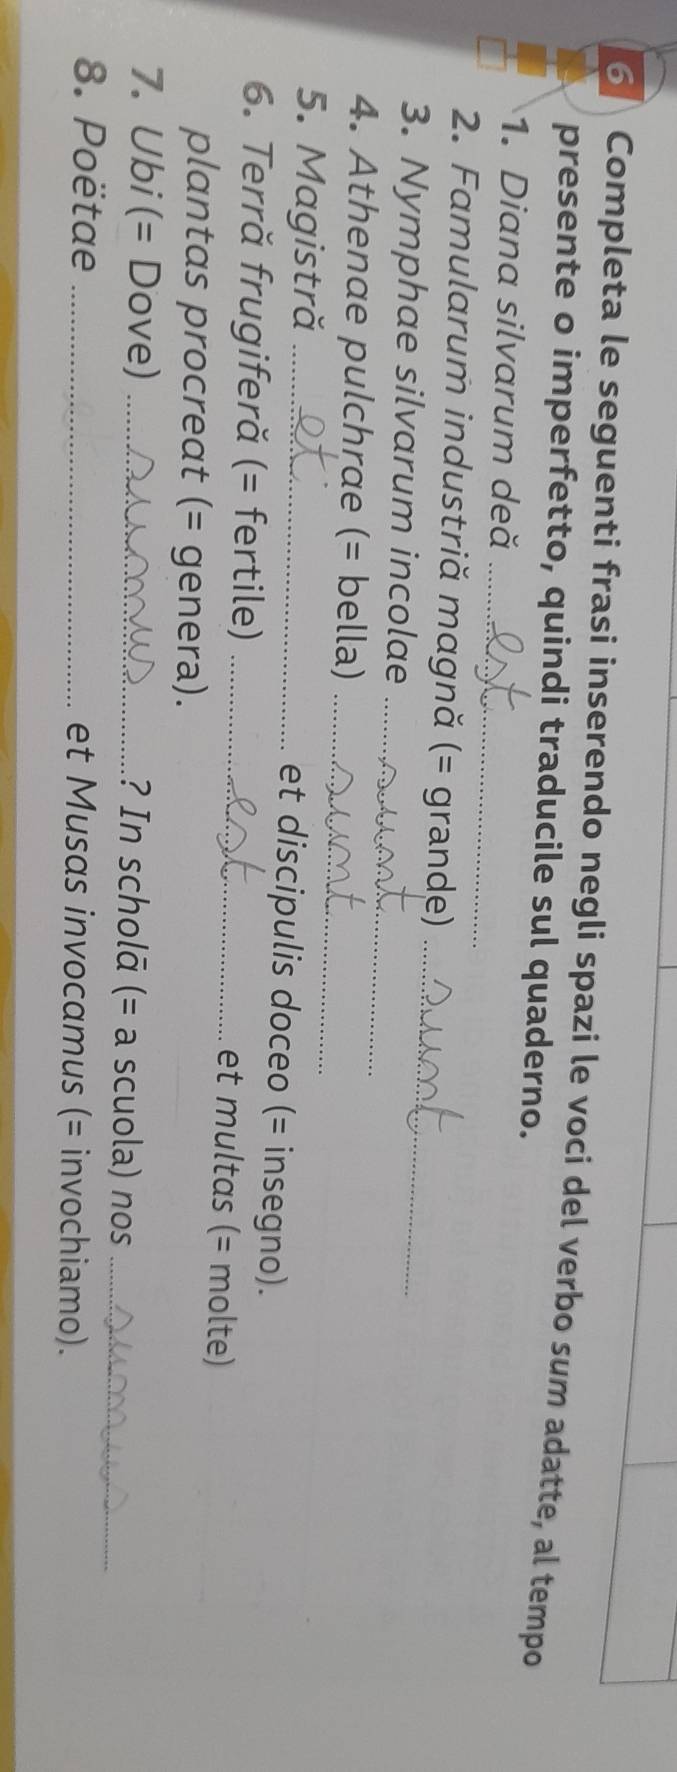 6 Completa le seguenti frasi inserendo negli spazi le voci del verbo sum adatte, al tempo
presente o imperfetto, quindi traducile sul quaderno.
1. Diana silvarum deă est
2. Famularum industriă magnă (= grande) sunt
3. Nymphae silvarum incolae sunt
4. Athenae pulchrae (= bella) sunt
5. Magistră et et discipulis doceo (= insegno).
6. Terră frugiferă (= fertile) est et multas (= molte)
plantas procreat (= genera).
7. Ubi (= Dove) sumus ? In scholā (= a scuola) nos sumus
8. Poëtae et Musas invocamus (= invochiamo).